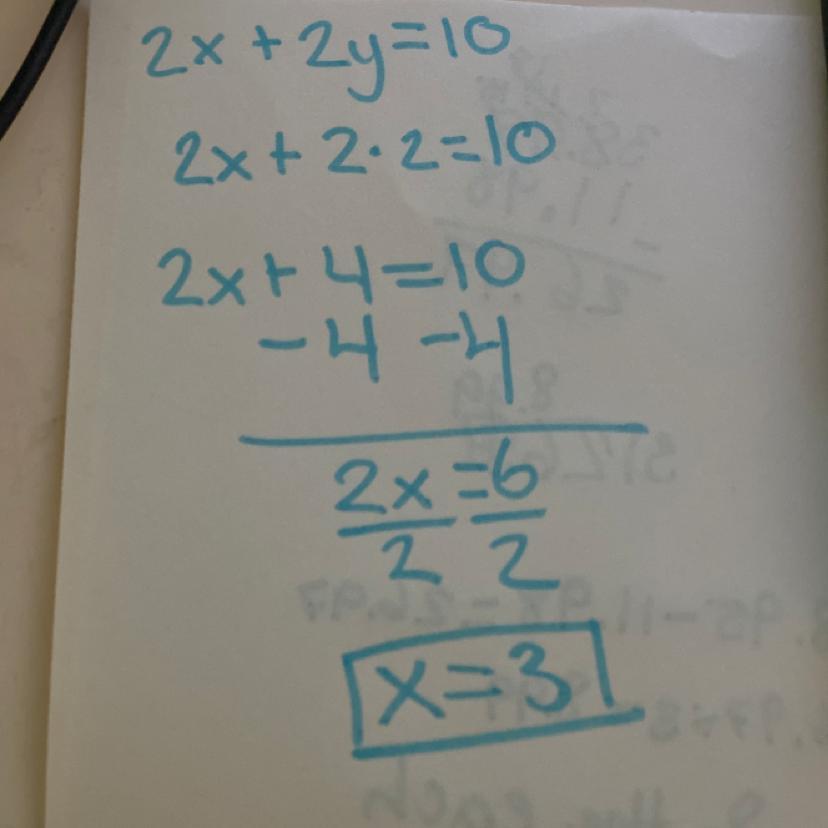 2x + 2y = 10
2x + 2 · 2 = 10
2x + 4 = 10
- 4 - 4
2x = 6
2 2
x = 3